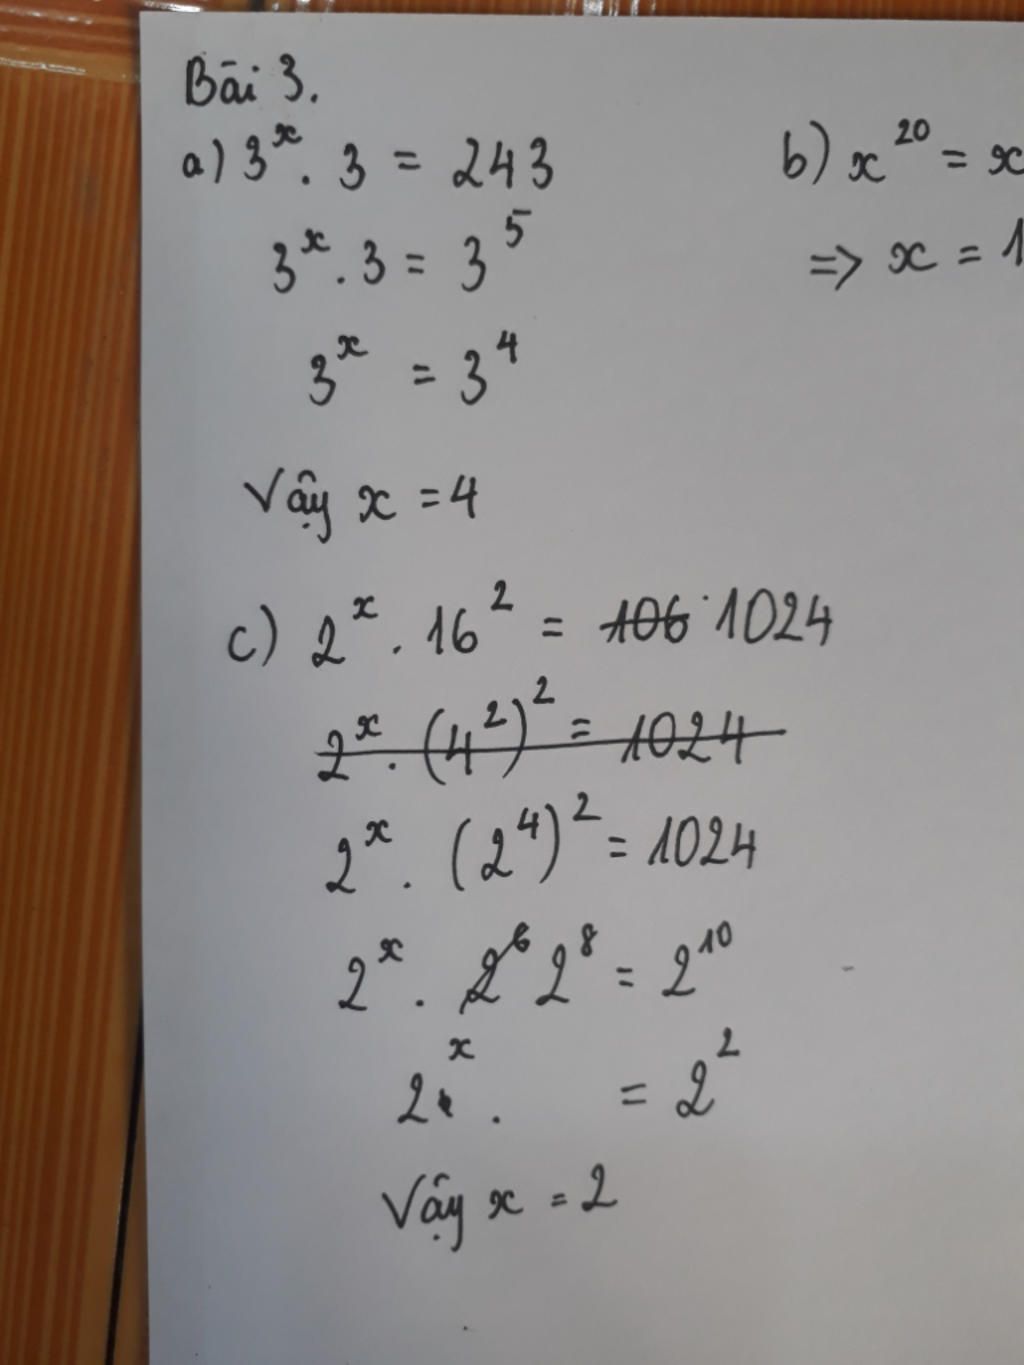 Bài 3.
a) 3^x . 3 = 243
3^x . 3 = 3^5
3^x = 3^4
Vậy x = 4
b) x^20 = x
=> x = 1
c) 2^x . 16^2 = 106 1024
2^x . (4^2)^2 = 1024
2^x . (2^4)^2 = 1024
2^x . 2^6 2^8 = 2^10
2^x . = 2^2
Vậy x = 2